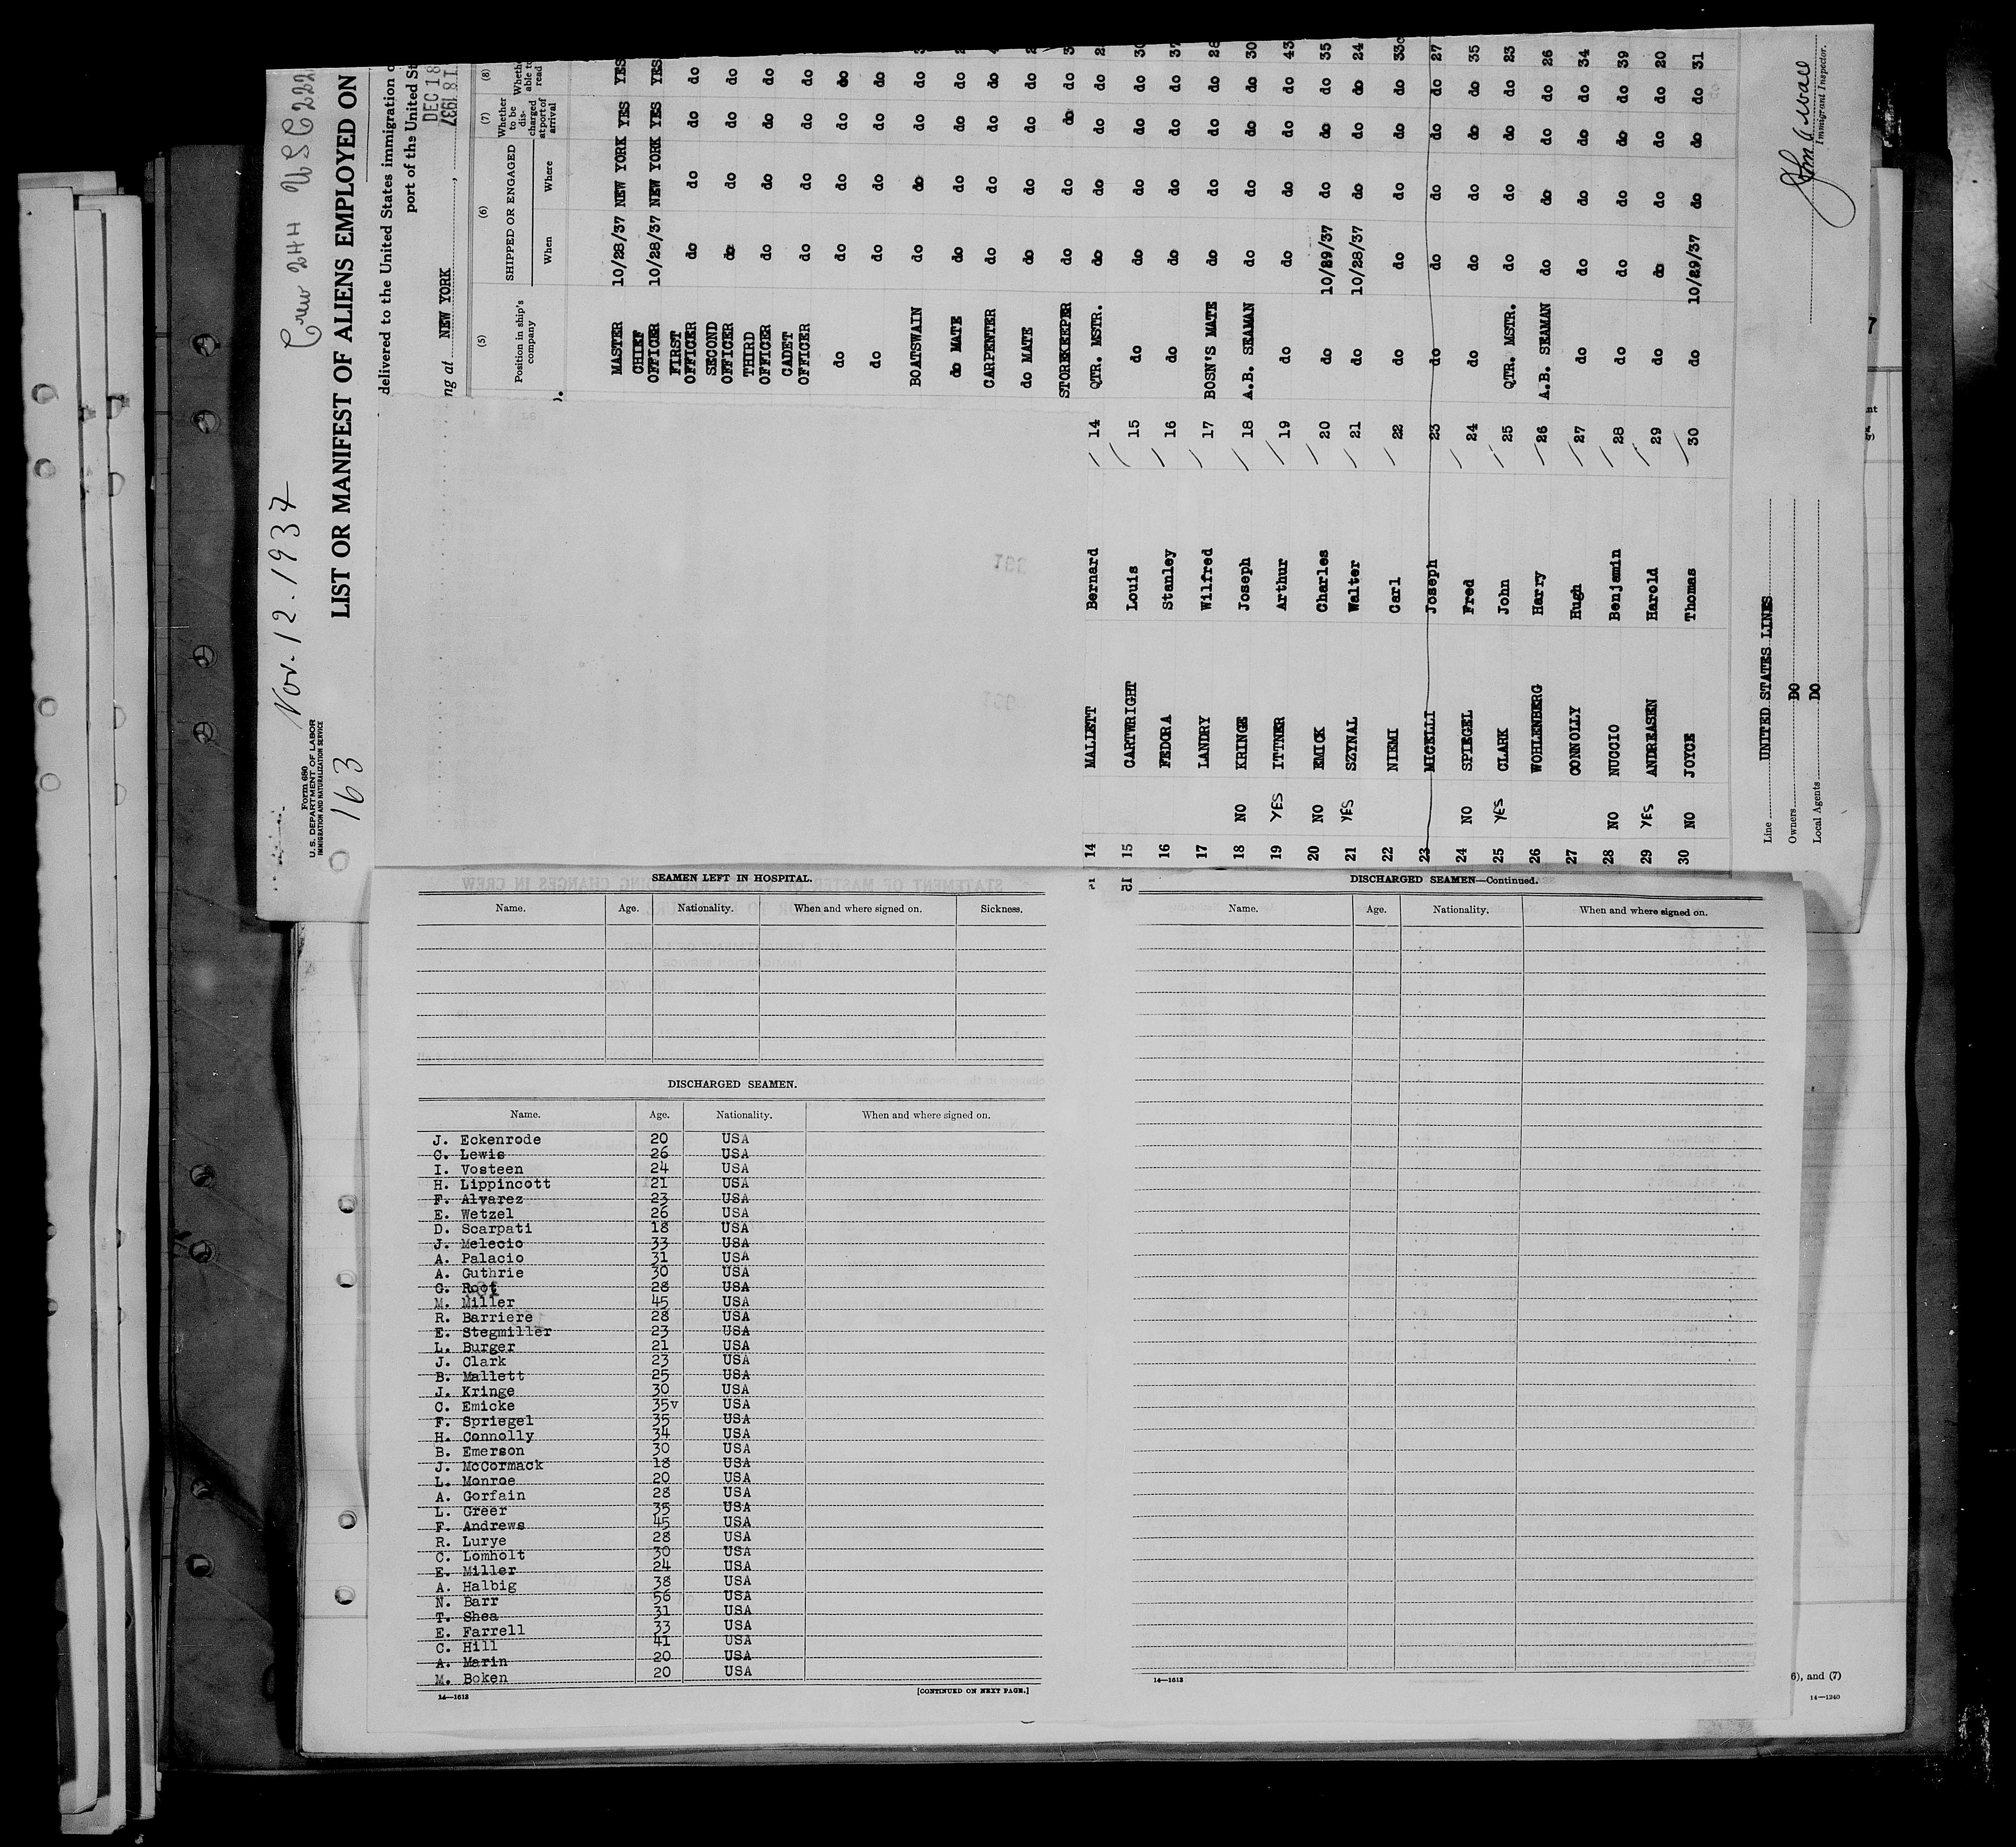 Nov. 12. 1937 Crew 244 USC 222
Form 680
U.S. DEPARTMENT OF LABOR
IMMIGRATION AND NATURALIZATION SERVICE
163
LIST OR MANIFEST OF ALIENS EMPLOYED ON
delivered to the United States immigration o
port of the United St
ng at NEW YORK , DEC 18 1937
(5) (6) (7) (8)
Position in ship's company SHIPPED OR ENGAGED When Where Whether to be discharged at port of arrival Wheth able to read
MASTER 10/28/37 NEW YORK YES YES
CHIEF OFFICER 10/28/37 NEW YORK YES YES
FIRST OFFICER do do do do
SECOND OFFICER do do do do
THIRD OFFICER do do do do
CADET OFFICER do do do do
do do do do do
do do do do do
BOATSWAIN do do do do
do MATE do do do do
CARPENTER do do do do
do MATE do do do do
STOREKEEPER do do do do
14 MALLETT Bernard 14 QTR. MSTR. do do do do
15 CARTWRIGHT Louis 15 do do do do do 30
16 FEDORA Stanley 16 do do do do do 37
17 LANDRY Wilfred 17 BOSN'S MATE do do do do 28
18 NO KRINGE Joseph 18 A.B. SEAMAN do do do do 30
19 YES ITTNER Arthur 19 do do do do do 43
20 NO EMICK Charles 20 do 10/29/37 do do do 35
21 YES SZYNAL Walter 21 do 10/28/37 do do do 24
22 NIEMI Carl 22 do do do do do 33
23 MICELLI Joseph 23 do do do do do 27
24 NO SPIEGEL Fred 24 do do do do do 35
25 YES CLARK John 25 QTR. MSTR. do do do do 23
26 WOHLENBERG Harry 26 A.B. SEAMAN do do do do 26
27 CONNOLLY Hugh 27 do do do do do 34
28 NO NUCCIO Benjamin 28 do do do do do 39
29 YES ANDREASEN Harold 29 do do do do do 20
30 NO JOYCE Thomas 30 do 10/29/37 do do do 31
Line UNITED STATES LINES
Owners DO
Local Agents DO
Immigrant Inspector.
SEAMEN LEFT IN HOSPITAL.
Name. Age. Nationality. When and where signed on. Sickness.
DISCHARGED SEAMEN.
Name. Age. Nationality. When and where signed on.
J. Eckenrode 20 USA
C. Lewis 26 USA
I. Vosteen 24 USA
H. Lippincott 21 USA
F. Alvarez 23 USA
E. Wetzel 26 USA
D. Scarpati 18 USA
J. Melecio 33 USA
A. Palacio 31 USA
A. Guthrie 30 USA
G. Root 28 USA
M. Miller 45 USA
R. Barriere 28 USA
E. Stegmiller 23 USA
L. Burger 21 USA
J. Clark 23 USA
B. Mallett 25 USA
J. Kringe 30 USA
C. Emicke 35v USA
F. Spriegel 35 USA
H. Connolly 34 USA
B. Emerson 30 USA
J. McCormack 18 USA
L. Monroe 20 USA
A. Gorfain 28 USA
L. Greer 35 USA
F. Andrews 45 USA
R. Lurye 28 USA
C. Lomholt 30 USA
E. Miller 24 USA
A. Halbig 38 USA
N. Barr 56 USA
T. Shea 31 USA
E. Farrell 33 USA
C. Hill 41 USA
A. Marin 20 USA
M. Boken 20 USA
14—1613 [CONTINUED ON NEXT PAGE.]
DISCHARGED SEAMEN—Continued.
Name. Age. Nationality. When and where signed on.
14—1613
6), and (7)
14—1240